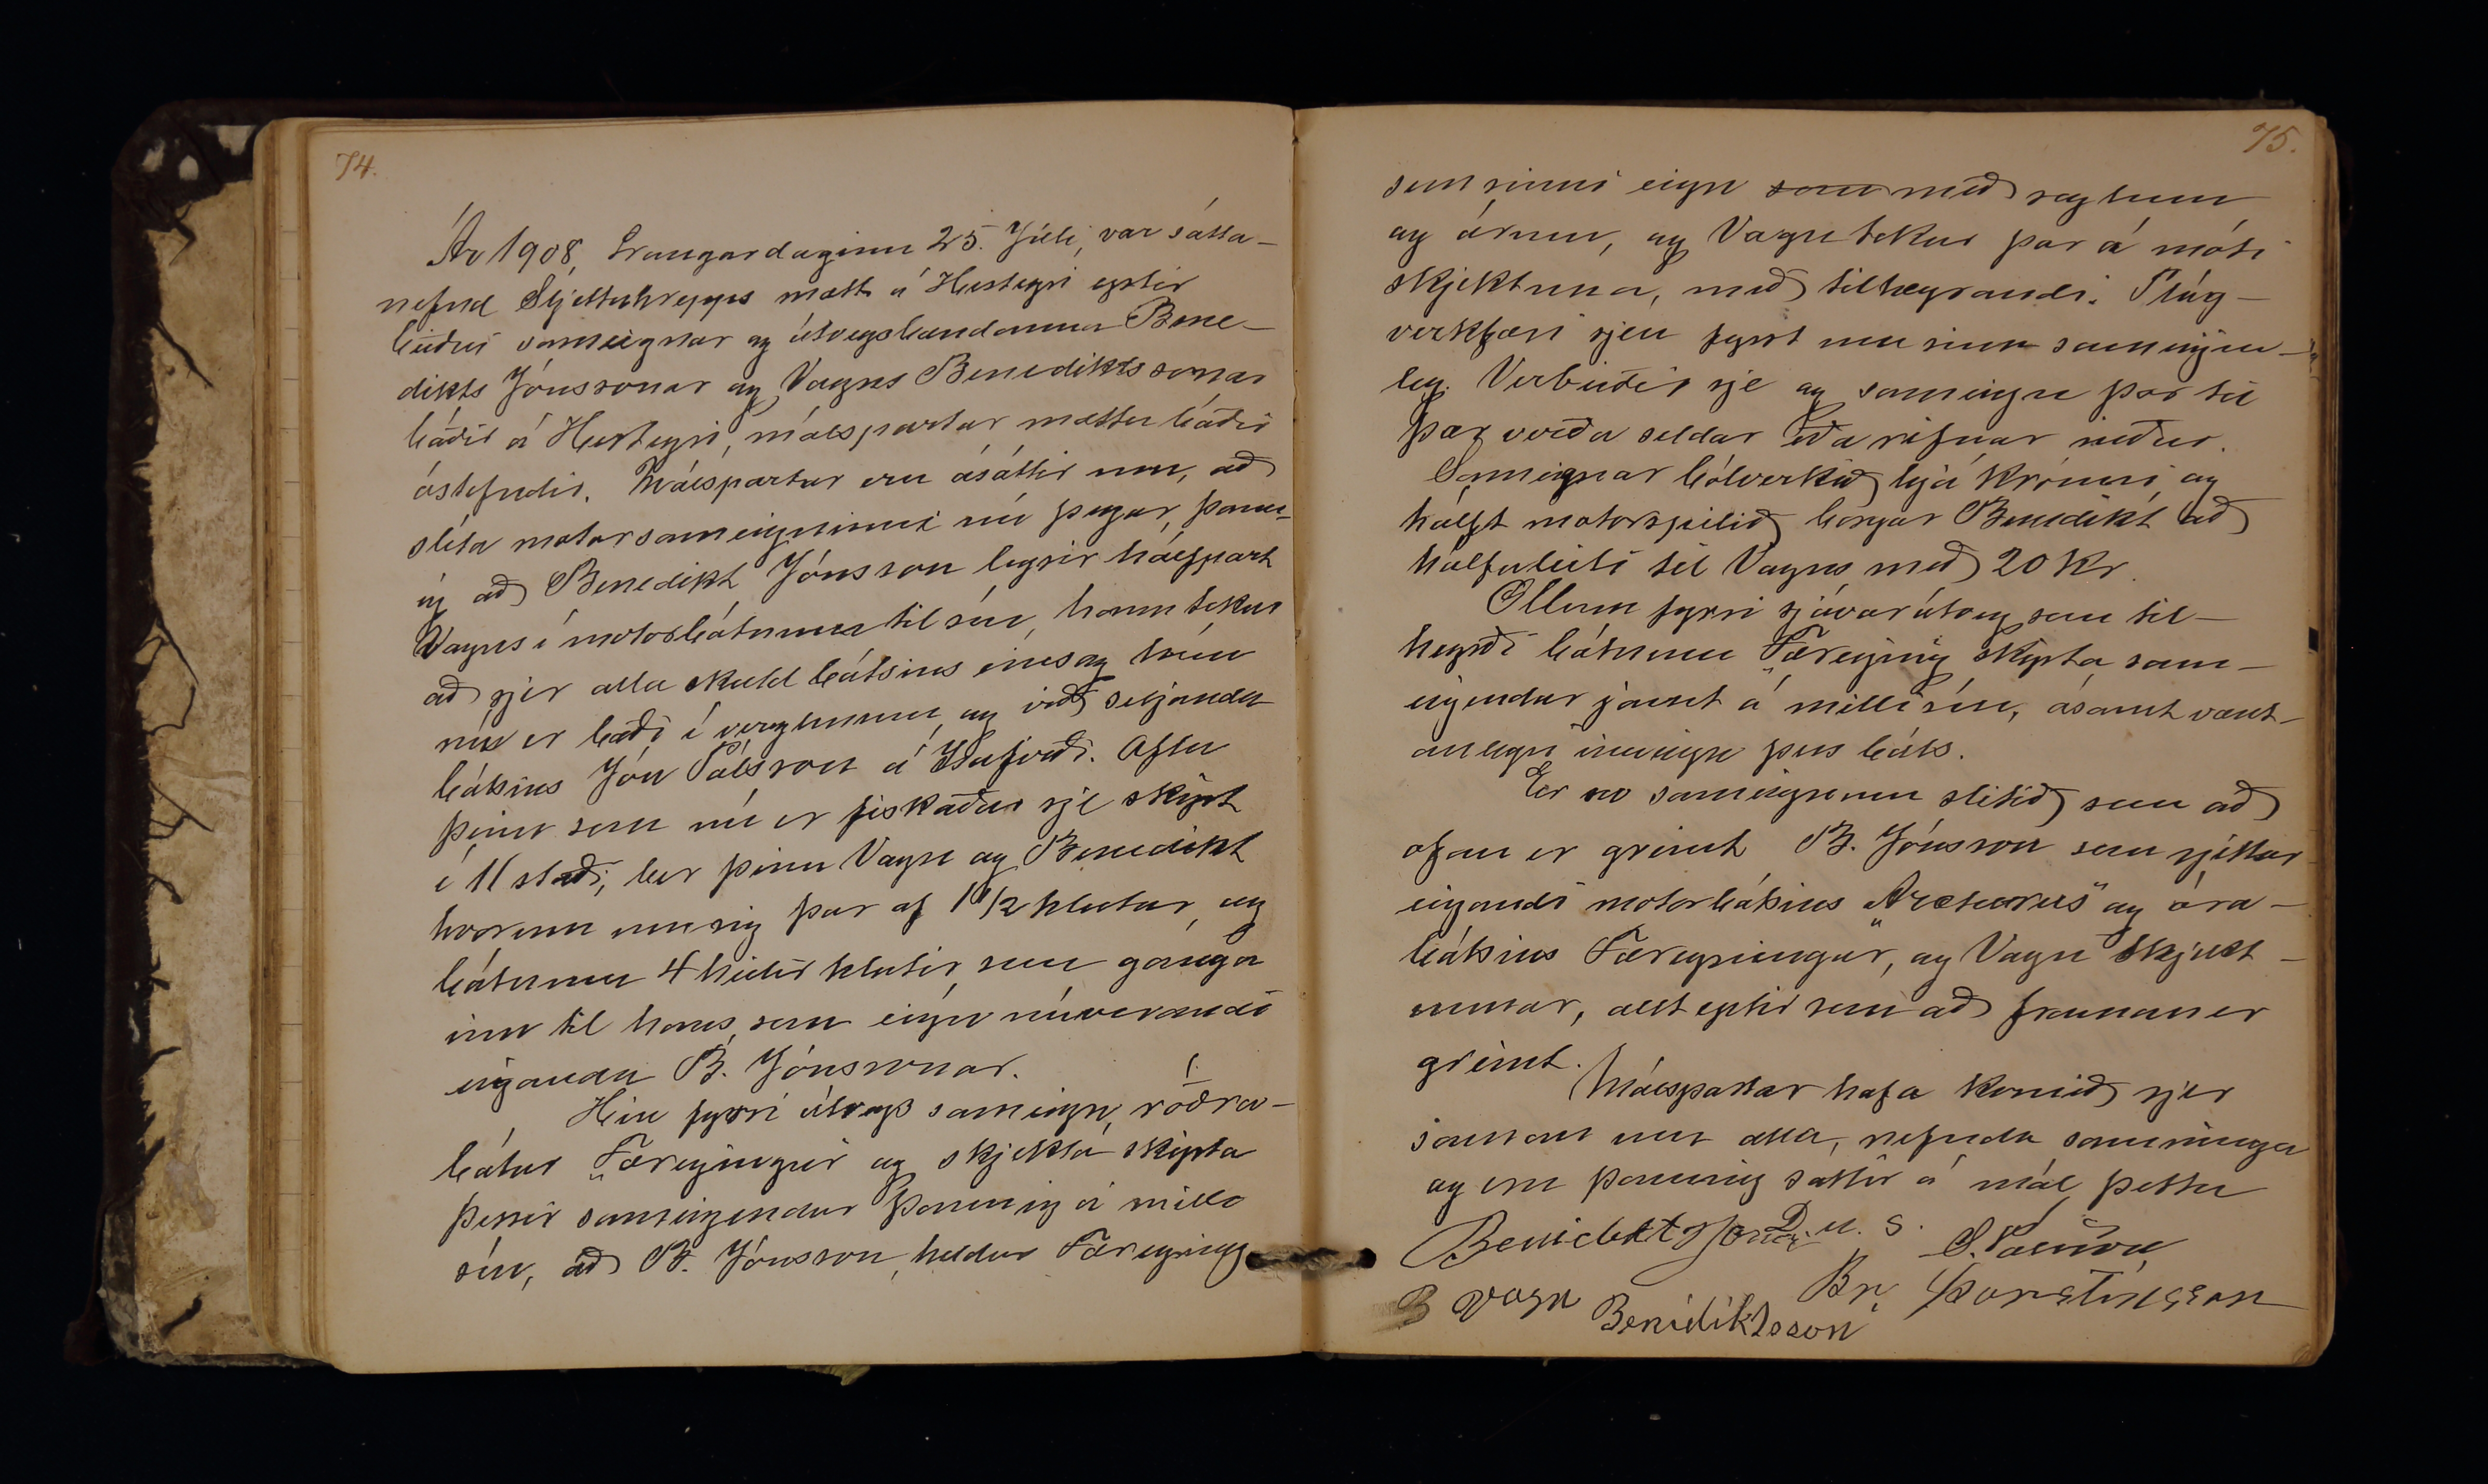 74.
Ár 1908, Laugardaginn 25. Júli, var sátta-
nefnd Sljettuhrepps mætt á Hesteyri eptir
beiðni sameignar og útvegsbændanna Bene-
dikts Jónssonar og Vagns Benediktssonar
báðir á Hesteyri, málspartar mættu báðir
óstefndir. Málspartar eru ásáttir um, að
slíta motorsameigninni nú þegar, þann-
ig að Benedikt Jónsson leysir hálfpart
Vagns í motorbátnum til sín, hann tekur
að sjer alla skuld bátsins eins og hún
nú er bæði í verzlunum og við seljanda
bátsins Jón Pálsson á Ísafirði. Afla
þeim sem nú er fiskaður sje skipt
í 11 staði, ber þeim Vagn og Benedikt
hvorum um sig þar af 1 1/2 hlutur, og
bátnum 4 heilir hlutir, sem gánga
inn til hans, sem eign núverandi
eiganda B. Jónssonar.
Hin fyrri útvegs sameign, 1. róðra-
bátur „Færeyingur og skjekta skipta
þessir sameigendur þannig á milli
sín, að B. Jónsson, heldur Færeying
75.
sem sinni eign som með seglum
og árum, og Vagn tekur þar á móti
skjektuna, með tilheyrandi. Plóg-
verkfæri sjeu fyrst um sinn sameigin-
leg. Verbúðir sje og sameign þar til
þær verða seldar eða rifnar niður.
Sameignar bólverkið hjá Krónni, og
hálft motorspilið borgar Benedikt að
hálfuleiti til Vagns með 20 kr.
Öllum fyrri sjávarútveg sem til-
heyrði bátnum „Færeying skipta sam-
eigendur jamt á milli sín, ásamt vænt-
anlegri inneign þess báts.
Er svo sameigninni slitið sem að
ofan er greint B. Jónsson sem rjettur
eigandi motorbátsins „Arcturus" og ára-
bátsins Færeyingur", og Vagn skjekt-
unnar, allt eptir sem að framan er
greint.
Málspartar hafa komið sjer
saman um alla, nefnda samninga
og eru þannig sáttir á mál þetta
D. u. s.
Benidikt Jónss S. Pálsson
B Vagn Benidiktsson Br. Þorsteinsson